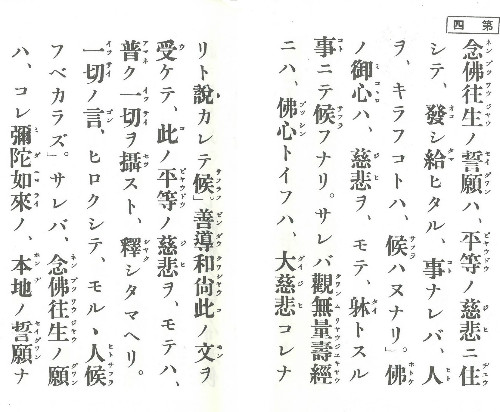 第四
念佛往生ノ誓願ハ、平等ノ慈悲ニ住
シテ、發シ給ヒタル、事ナレバ、人
ヲ、キラフコトハ、候ハヌナリ」佛
ノ御心ハ、慈悲ヲ、モテ、躰トスル
事ニテ候フナリ。サレバ觀無量壽經
ニハ、佛心トイフハ、大慈悲コレナ
リト說カレテ候」善導和尙此ノ文ヲ
受ケテ、此ノ平等ノ慈悲ヲ、モテハ、
普ク一切ヲ攝スト、釋シタマヘリ。
一切ノ言、ヒロクシテ、モルヽ人候
フベカラズ」。サレバ、念佛往生ノ願
ハ、コレ彌陀如來ノ、本地ノ誓願ナ